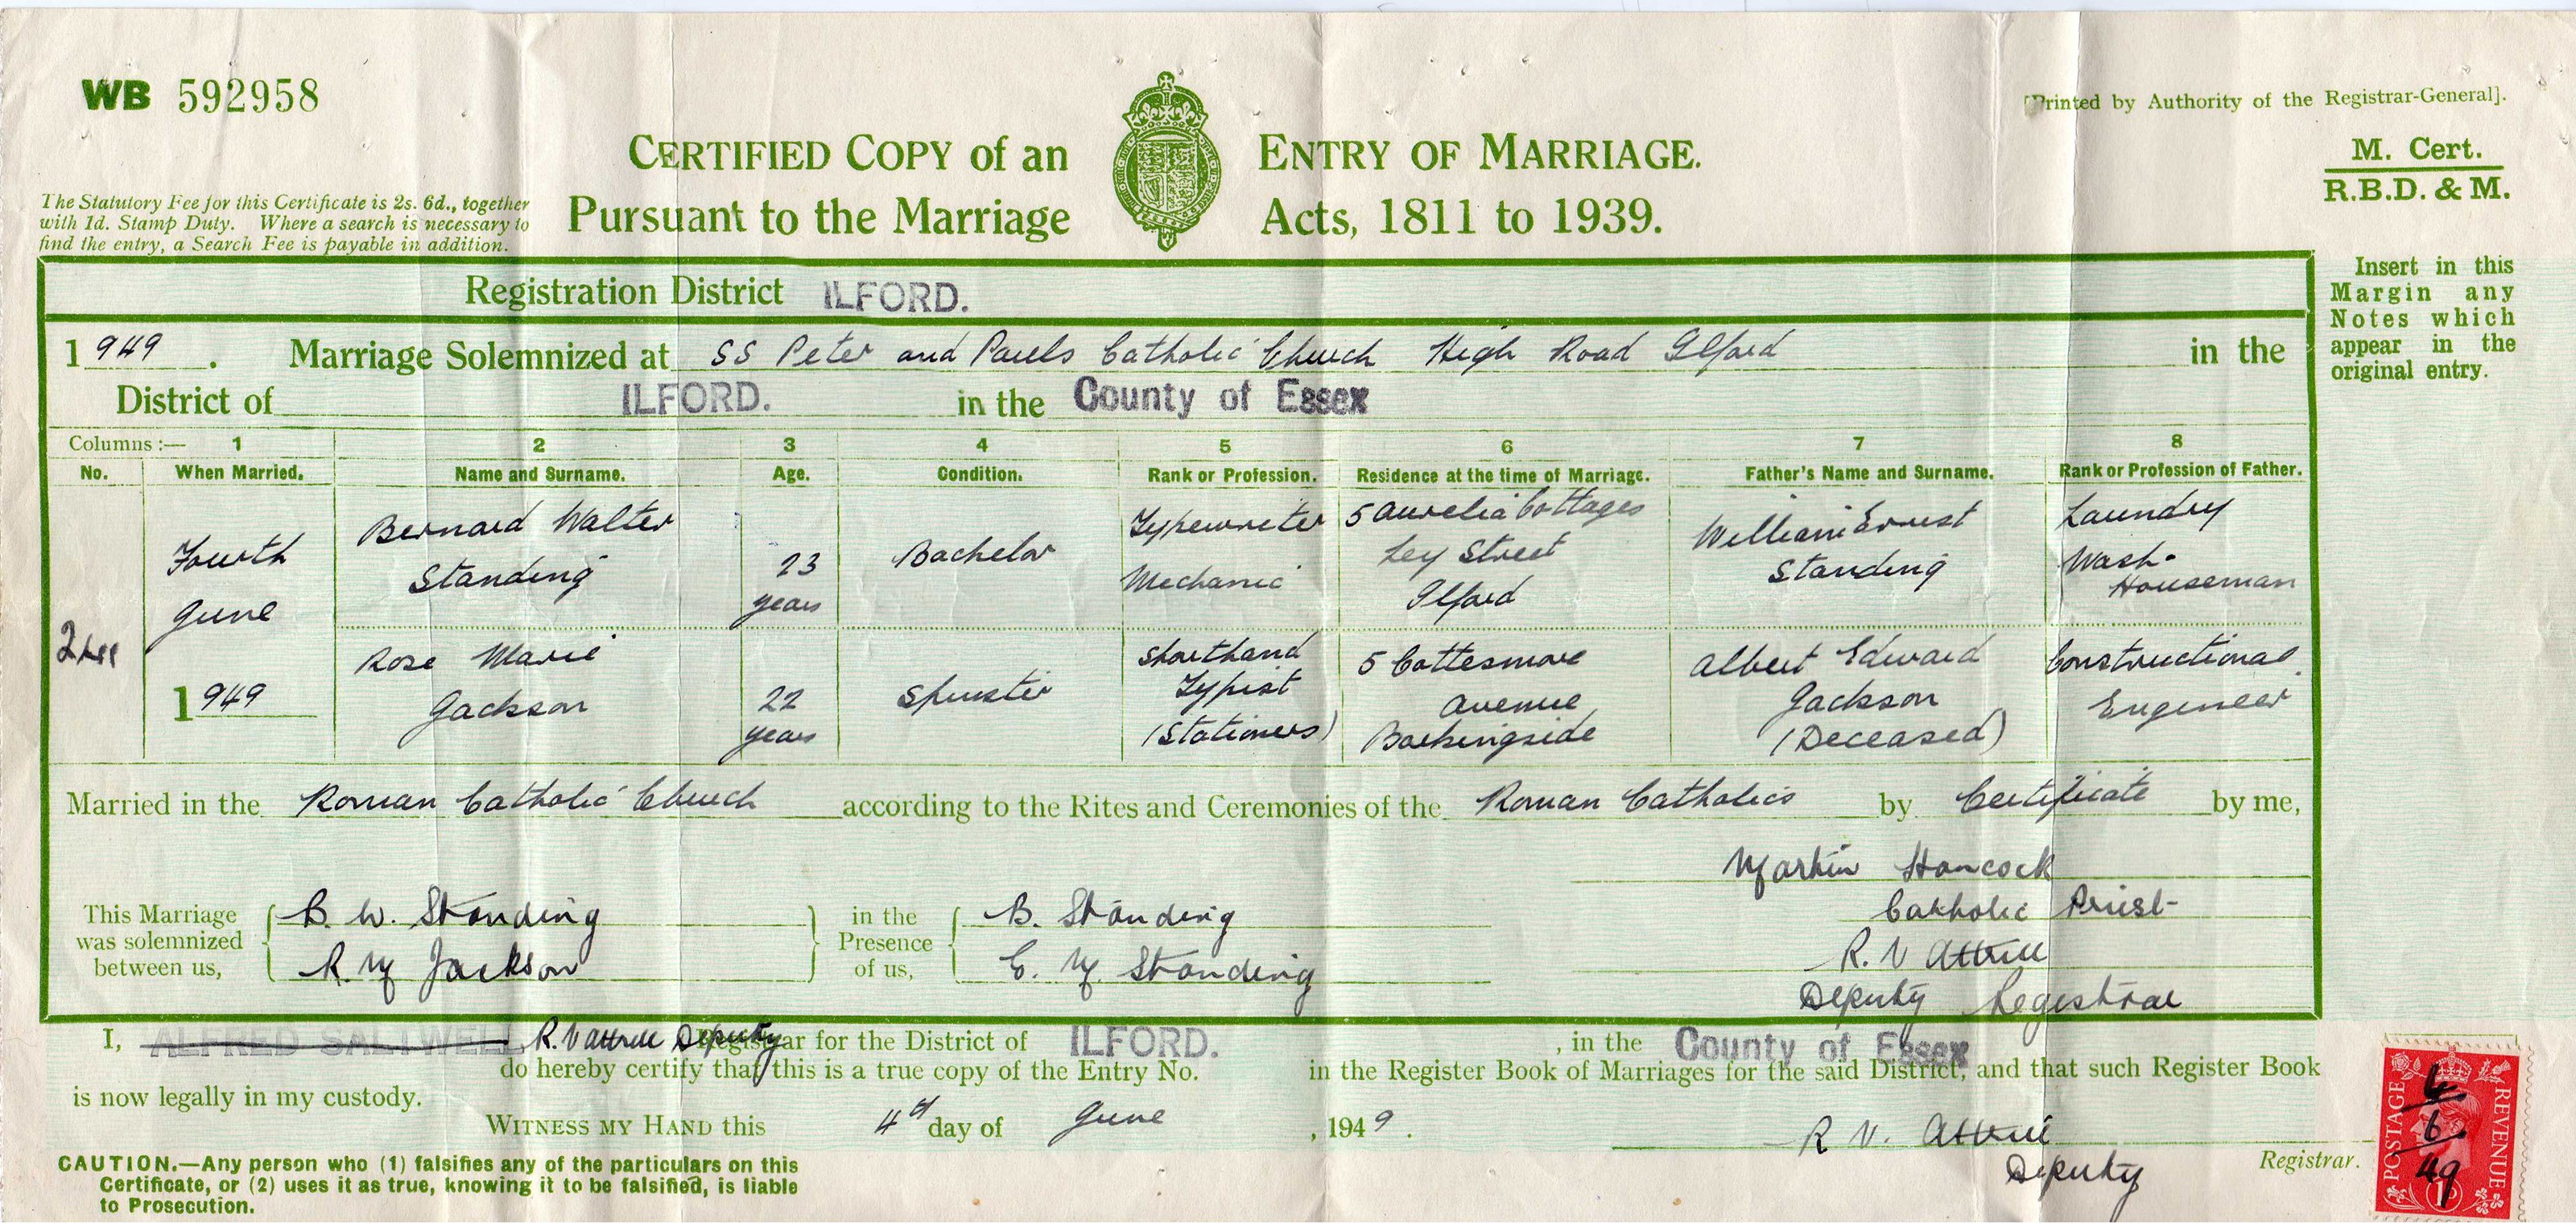 WB 592958
[Printed by Authority of the Registrar-General].
CERTIFIED COPY of an ENTRY OF MARRIAGE.
Pursuant to the Marriage Acts, 1811 to 1939.
M. Cert.
R.B.D. & M.
The Statutory Fee for this Certificate is 2s. 6d., together
with 1d. Stamp Duty. Where a search is necessary to
find the entry, a Search Fee is payable in addition.
Insert in this
Margin any
Notes which
appear in the
original entry.
Registration District ILFORD.
1949. Marriage Solemnized at SS Peter and Pauls Catholic Church High Road Ilford in the
District of ILFORD. in the County of Essex
Columns :— 1 2 3 4 5 6 7 8
No. When Married. Name and Surname. Age. Condition. Rank or Profession. Residence at the time of Marriage. Father's Name and Surname. Rank or Profession of Father.
Fourth
June
1949
Bernard Walter
Standing
23
years
Bachelor
Typewriter
Mechanic
5 Aurelia Cottages
Ley Street
Ilford
William Ernest
Standing
Laundry
Wash-
Houseman
Rose Marie
Jackson
22
years
Spinster
Shorthand
Typist
(Stationers)
5 Cottesmore
Avenue
Barkingside
Albert Edward
Jackson
(Deceased)
Constructional
Engineer
Married in the Roman Catholic Church according to the Rites and Ceremonies of the Roman Catholics by Certificate by me,
Martin Hancock
Catholic Priest
R. V Attrill
Deputy Registrar
This Marriage
was solemnized
between us,
B. W. Standing
R. M Jackson
in the
Presence
of us,
B. Standing
E. M. Standing
I, ALFRED SALTWELL R. V Attrill Deputy Registrar for the District of ILFORD. , in the County of Essex
do hereby certify that this is a true copy of the Entry No. in the Register Book of Marriages for the said District, and that such Register Book
is now legally in my custody.
WITNESS MY HAND this 4th day of June , 1949.
R V. Attrill
Deputy Registrar.
CAUTION.—Any person who (1) falsifies any of the particulars on this
Certificate, or (2) uses it as true, knowing it to be falsified, is liable
to Prosecution.
POSTAGE
REVENUE
4
6
49